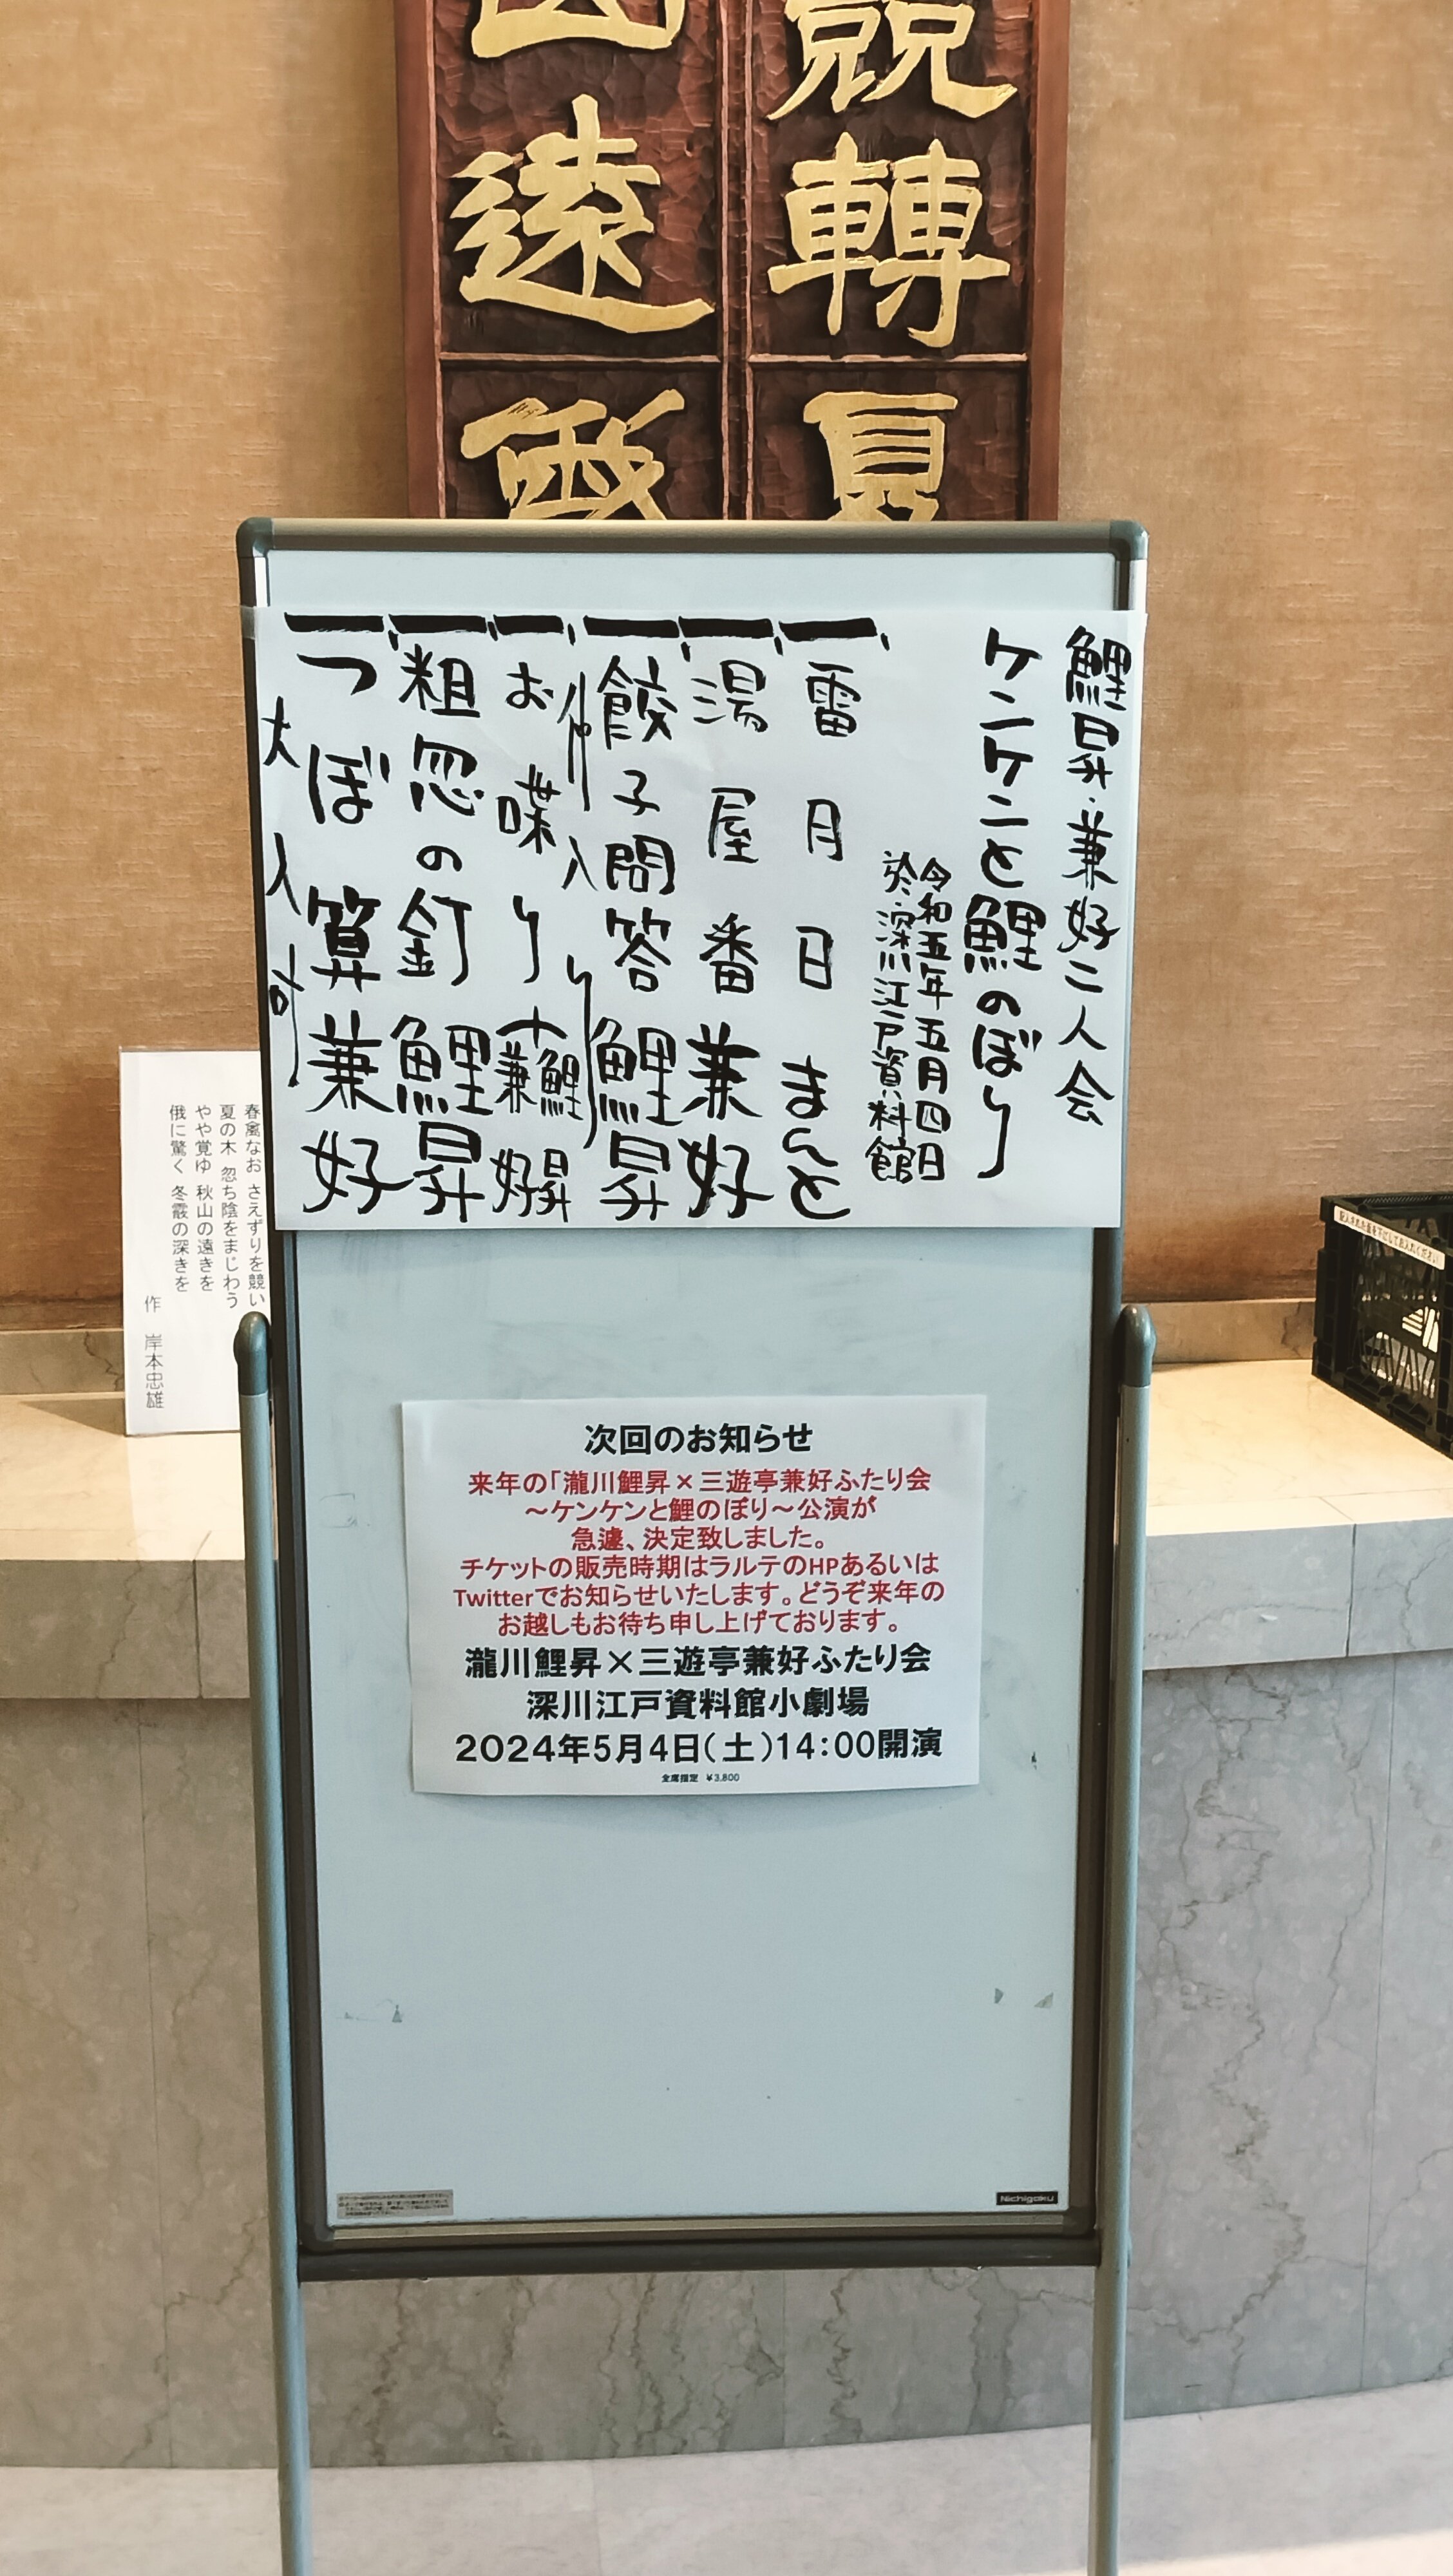 競轉夏
山遠霞
鯉昇・兼好二人会
ケンケンと鯉のぼり
令和五年五月四日
於・深川江戸資料館
一、雷月日 まんと
一、湯屋番 兼好
一、餃子問答 鯉昇
仲入り
一、お喋り 鯉昇+兼好
一、粗忽の釘 鯉昇
一、つぼ算 兼好
大入叶
春禽なお さえずりを競い
夏の木 忽ち陰をまじわう
やや覚ゆ 秋山の遠きを
俄に驚く 冬霰の深きを
作 岸本忠雄
記入された面を下にしてお入れください
次回のお知らせ
来年の「瀧川鯉昇×三遊亭兼好ふたり会
～ケンケンと鯉のぼり～公演が
急遽、決定致しました。
チケットの販売時期はラルテのHPあるいは
Twitterでお知らせいたします。どうぞ来年の
お越しもお待ち申し上げております。
瀧川鯉昇×三遊亭兼好ふたり会
深川江戸資料館小劇場
2024年5月4日(土)14:00開演
全席指定 ¥3,800
Nichigaku